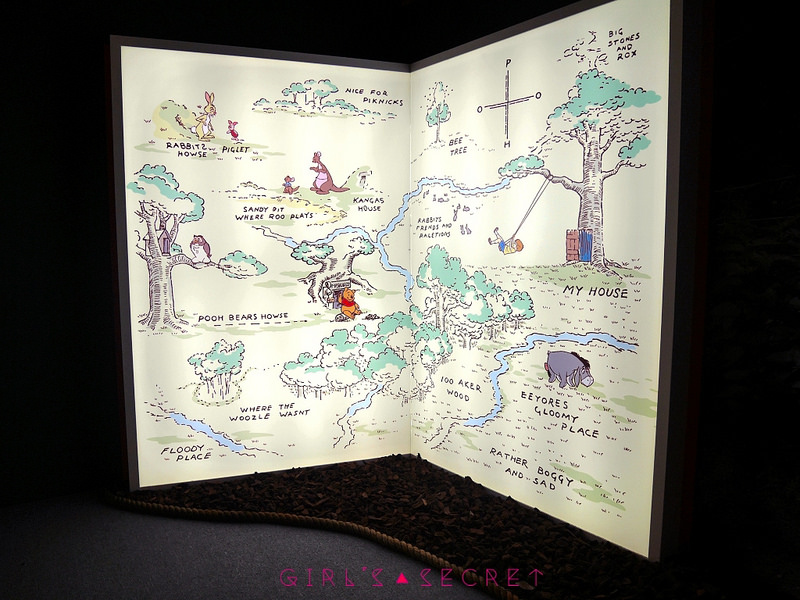 NICE FOR
PIKNICKS
RABBITZ
HOWSE
PIGLET
SANDY PIT
WHERE ROO PLAYS
KANGAS
HOUSE
POOH BEARS HOWSE
WHERE THE
WOOZLE WASNT
FLOODY
PLACE
BIG
STONES
AND
ROX
P
O O
H
BEE
TREE
RABBITS
FRENDS AND
RALETIONS
MY HOUSE
100 AKER
WOOD
EEYORES
GLOOMY
PLACE
RATHER BOGGY
AND SAD
GIRL'S▲SECRET